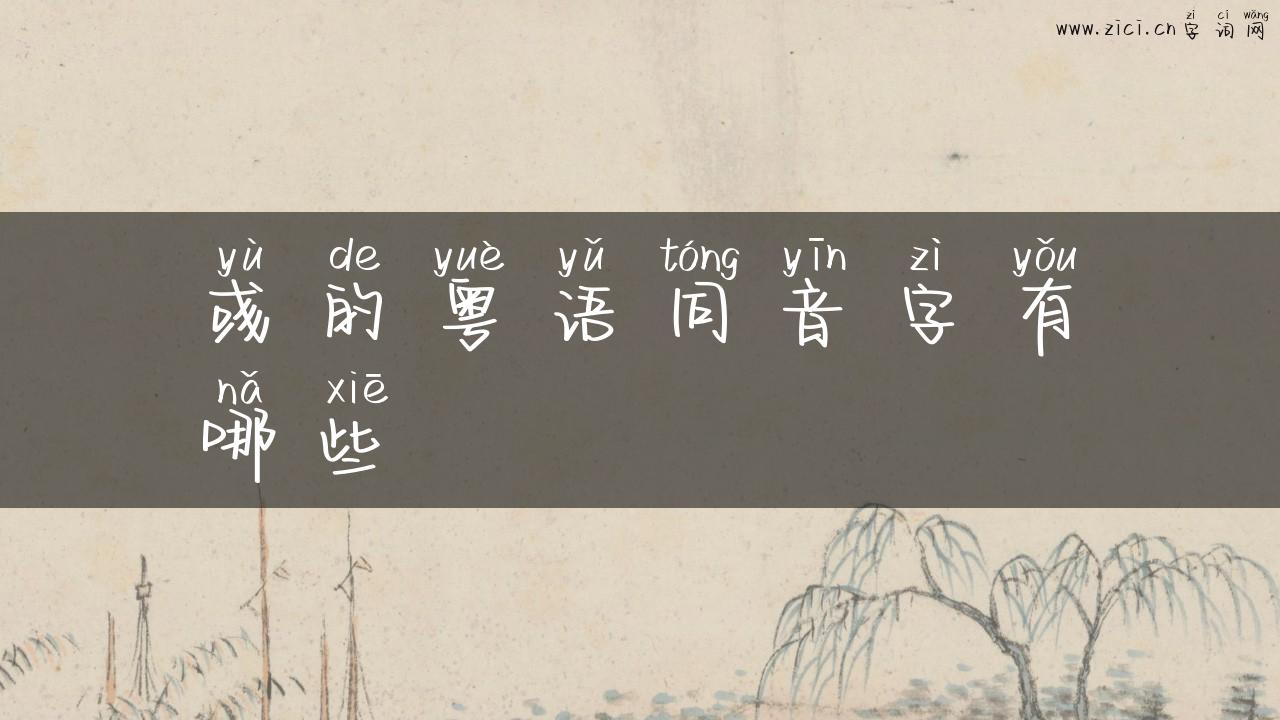 zì cí wǎng
www.zici.cn 字词网
yù de yuè yǔ tóng yīn zì yǒu
彧的粤语同音字有
nǎ xiē
哪些